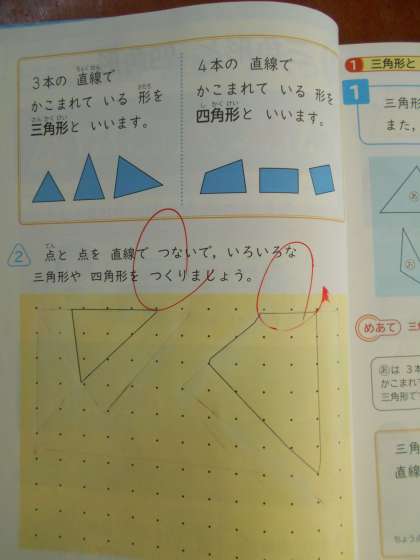 3本の 直線で
かこまれて いる 形を
三角形と いいます。
4本の 直線で
かこまれて いる 形を
四角形と いいます。
2 点と 点を 直線で つないで，いろいろな
三角形や 四角形を つくりましょう。
1 三角形と
1
三角形
また，
あ
い
めあて 三
あは 3本
かこまれ
三角形で
三角
直線
ちょう